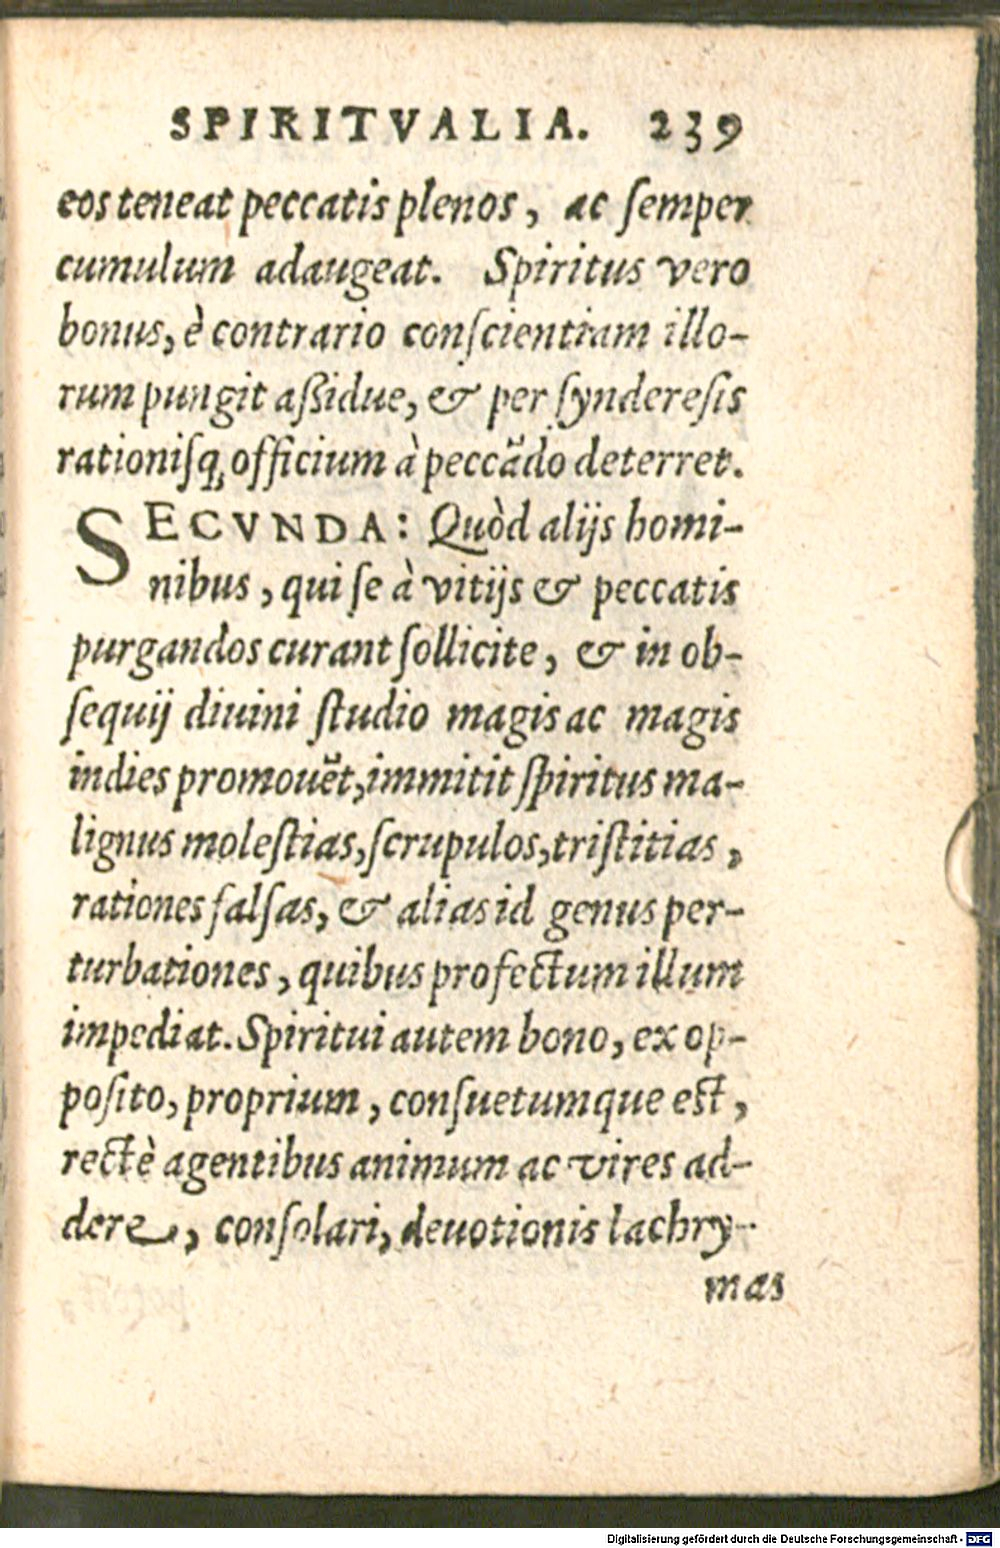 SPIRITVALIA. 239
eos teneat peccatis plenos, ac ſemper
cumulum adaugeat. Spiritus vero
bonus, è contrario conſcientiam illo-
rum pungit aſſidue, & per ſyndereſis
rationiſq; officium à peccãdo deterret.
SECVNDA: Quòd alijs homi-
nibus, qui ſe à vitijs & peccatis
purgandos curant ſollicite, & in ob-
ſequij diuini ſtudio magis ac magis
indies promouẽt, immitit ſpiritus ma-
lignus moleſtias, ſcrupulos, triſtitias,
rationes falſas, & alias id genus per-
turbationes, quibus profectum illum
impediat. Spiritui autem bono, ex op-
poſito, proprium, conſuetumque eſt,
rectè agentibus animum ac vires ad-
dere, conſolari, deuotionis lachry-
mas
Digitalisierung gefördert durch die Deutsche Forschungsgemeinschaft - DFG